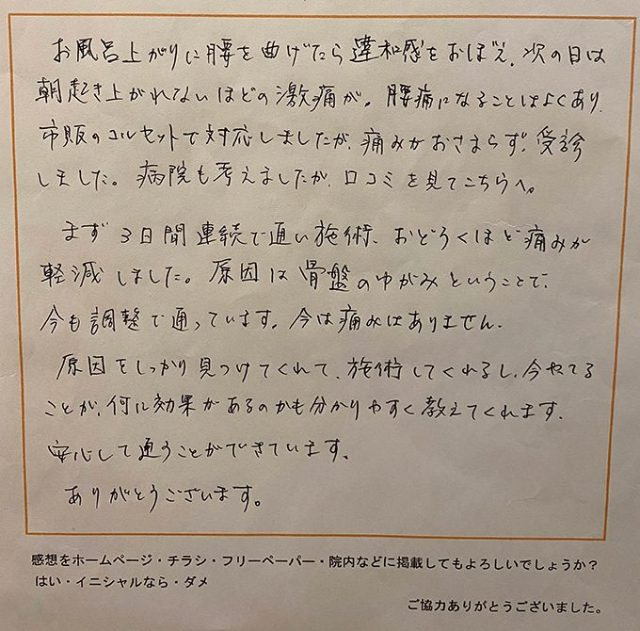 お風呂上がりに腰を曲げたら違和感をおぼえ、次の日は
朝起き上がれないほどの激痛が。腰痛になることはよくあり、
市販のコルセットで対応しましたが、痛みがおさまらず、受診
しました。病院も考えましたが、口コミを見てこちらへ。
まず3日間連続で通い施術、おどろくほど痛みが
軽減しました。原因は骨盤のゆがみということで、
今も調整で通っています。今は痛みはありません。
原因をしっかり見つけてくれて、施術してくれるし、今やってる
ことが、何に効果があるのかも分かりやすく教えてくれます。
安心して通うことができています。
ありがとうございます。
感想をホームページ・チラシ・フリーペーパー・院内などに掲載してもよろしいでしょうか？
はい・イニシャルなら・ダメ
ご協力ありがとうございました。